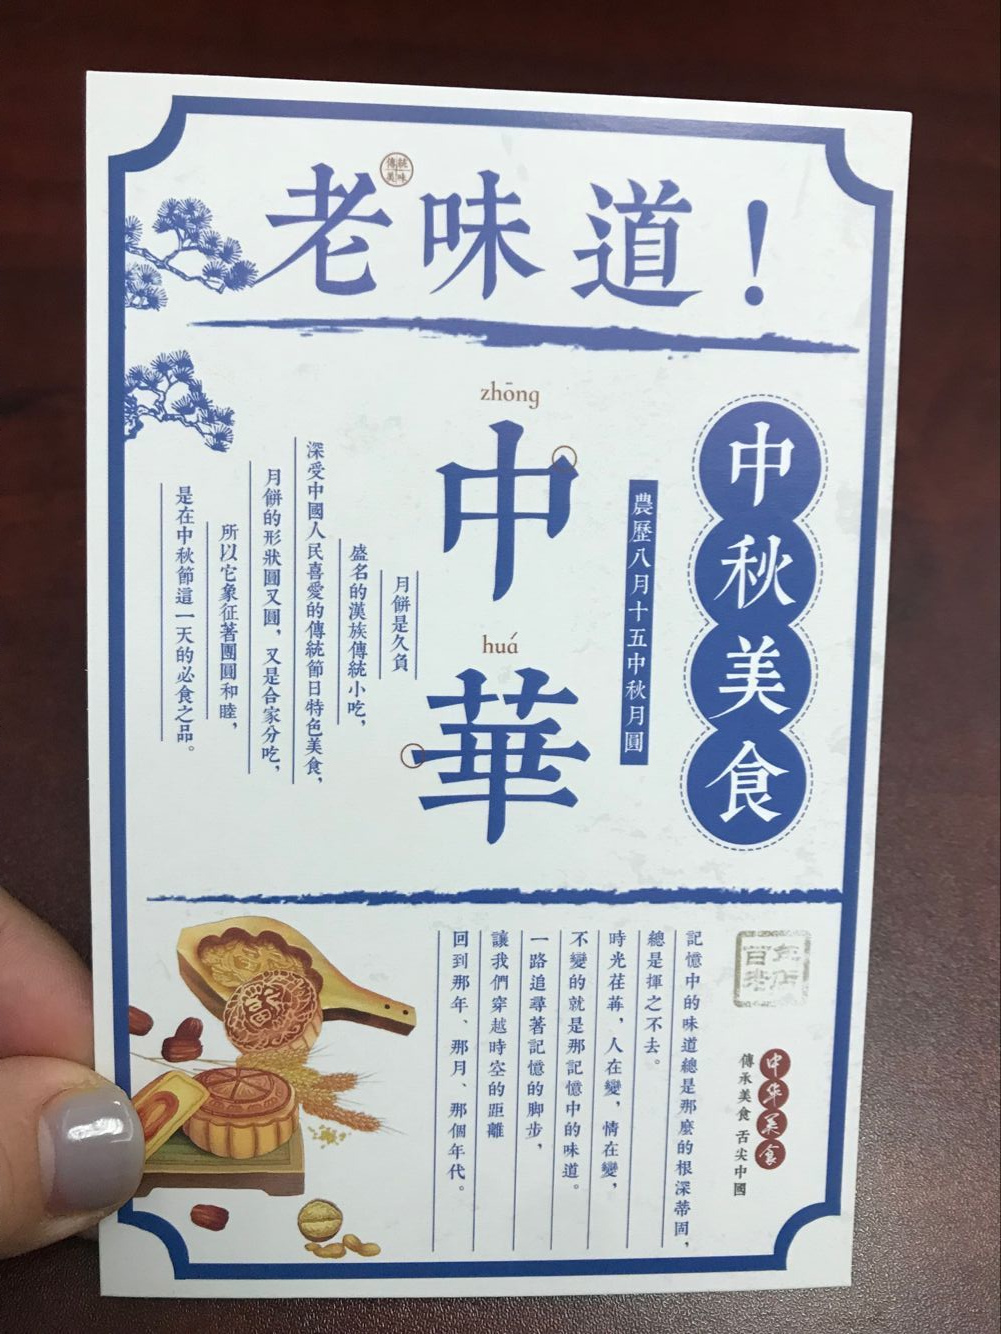 老味道！
傳統
美味
中秋美食
農歷八月十五中秋月圓
zhōng
中
huá
華
月餅是久負
盛名的漢族傳統小吃，
深受中國人民喜愛的傳統節日特色美食，
月餅的形狀圓又圓，又是合家分吃，
所以它象征著團圓和睦，
是在中秋節這一天的必食之品。
百年
老店
中华美食
傳承美食 舌尖中國
記憶中的味道總是那麼的根深蒂固，
總是揮之不去。
時光荏苒，人在變，情在變，
不變的就是那記憶中的味道。
一路追尋著記憶的脚步，
讓我們穿越時空的距離
回到那年、那月、那個年代。